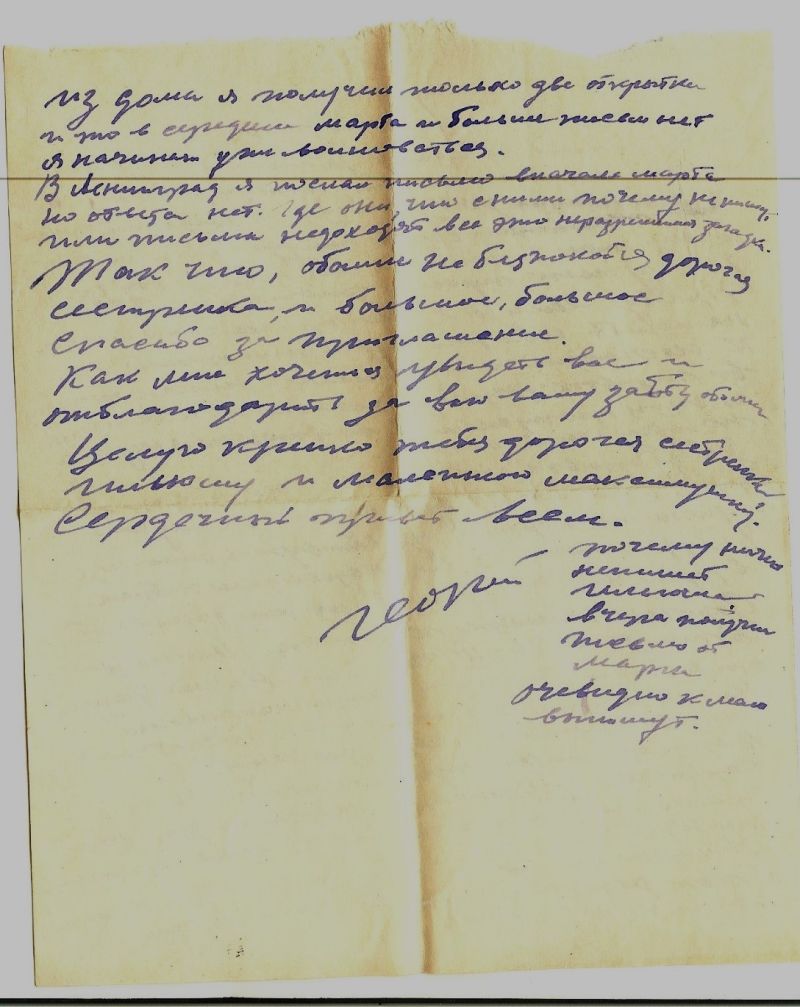 из дома я получил только две открытки
и то в середине марта и больше писем нет
я начинаю уже волноваться.
В Ленинград я послал письмо вначале марта
но ответа нет. Где они, что с ними почему не пишут,
или письма недоходят все это неразрешимая загадка.
Так что, обо мне не беспокойся дорогая
сестричка, и большое, большое
спасибо за приглашение.
Как мне хочется увидеть вас и
отблагодарить за всю вашу заботу обо мне
Целую крепко тебя дорогая сестричка
и маленькою
Сердечный привет всем.
Георгий
почему ничего
непишет
вчера получил
письмо от
Марии
очевидно к маю
выпишут.